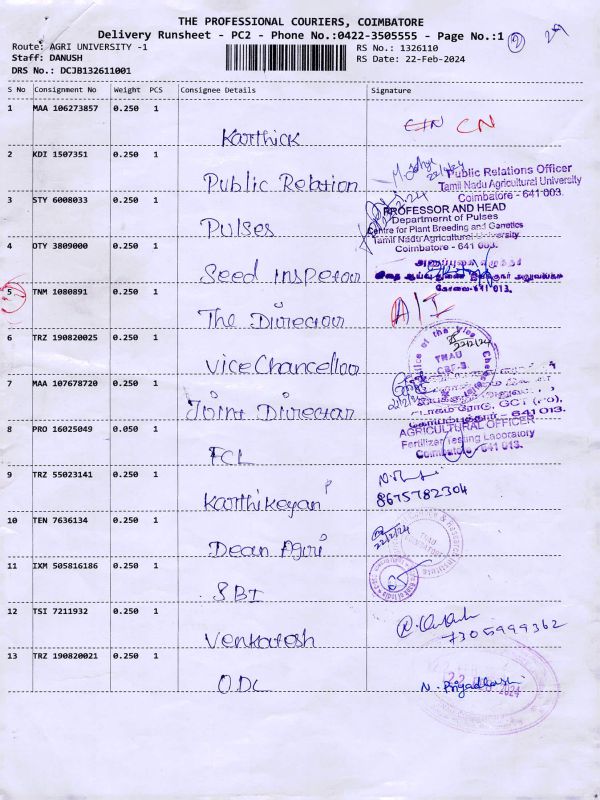 THE PROFESSIONAL COURIERS, COIMBATORE
Delivery Runsheet - PC2 - Phone No.:0422-3505555 - Page No.:1 2
Route: AGRI UNIVERSITY -1 RS No.: 1326110
Staff: DANUSH RS Date: 22-Feb-2024
DRS No.: DCJB132611001
S No Consignment No Weight PCS Consignee Details Signature
1 MAA 106273857 0.250 1
Karthick CN
2 KDI 1507351 0.250 1
Public Relation 22/2/24 Public Relations Officer
Tamil Nadu Agricultural University
Coimbatore - 641 003.
3 STY 6008033 0.250 1
Pulses PROFESSOR AND HEAD
Department of Pulses
Centre for Plant Breeding and Genetics
Tamil Nadu Agricultural University
Coimbatore - 641 003.
4 OTY 3809000 0.250 1
Seed Inspetor
கோவை-641 013.
5 TNM 1080891 0.250 1
The Director A/I
6 TRZ 190820025 0.250 1
Vice Chancellor 22/2/24
Office of the Vice
TNAU
CBE-3.
7 MAA 107678720 0.250 1
Joint Director 22/2/24
கோயம்புத்தூர் - 641 013.
8 PRO 16025049 0.050 1
FCL AGRICULTURAL OFFICER
Fertilizer Testing Laboratory
Coimbatore - 641 013.
9 TRZ 55023141 0.250 1
Karthikeyan P
8675782304
10 TEN 7636134 0.250 1
Dean Agri 22/2/24
11 IXM 505816186 0.250 1
SBI
12 TSI 7211932 0.250 1
Venkatesh 7305999362
13 TRZ 190820021 0.250 1
ODL N. Priyadharshini